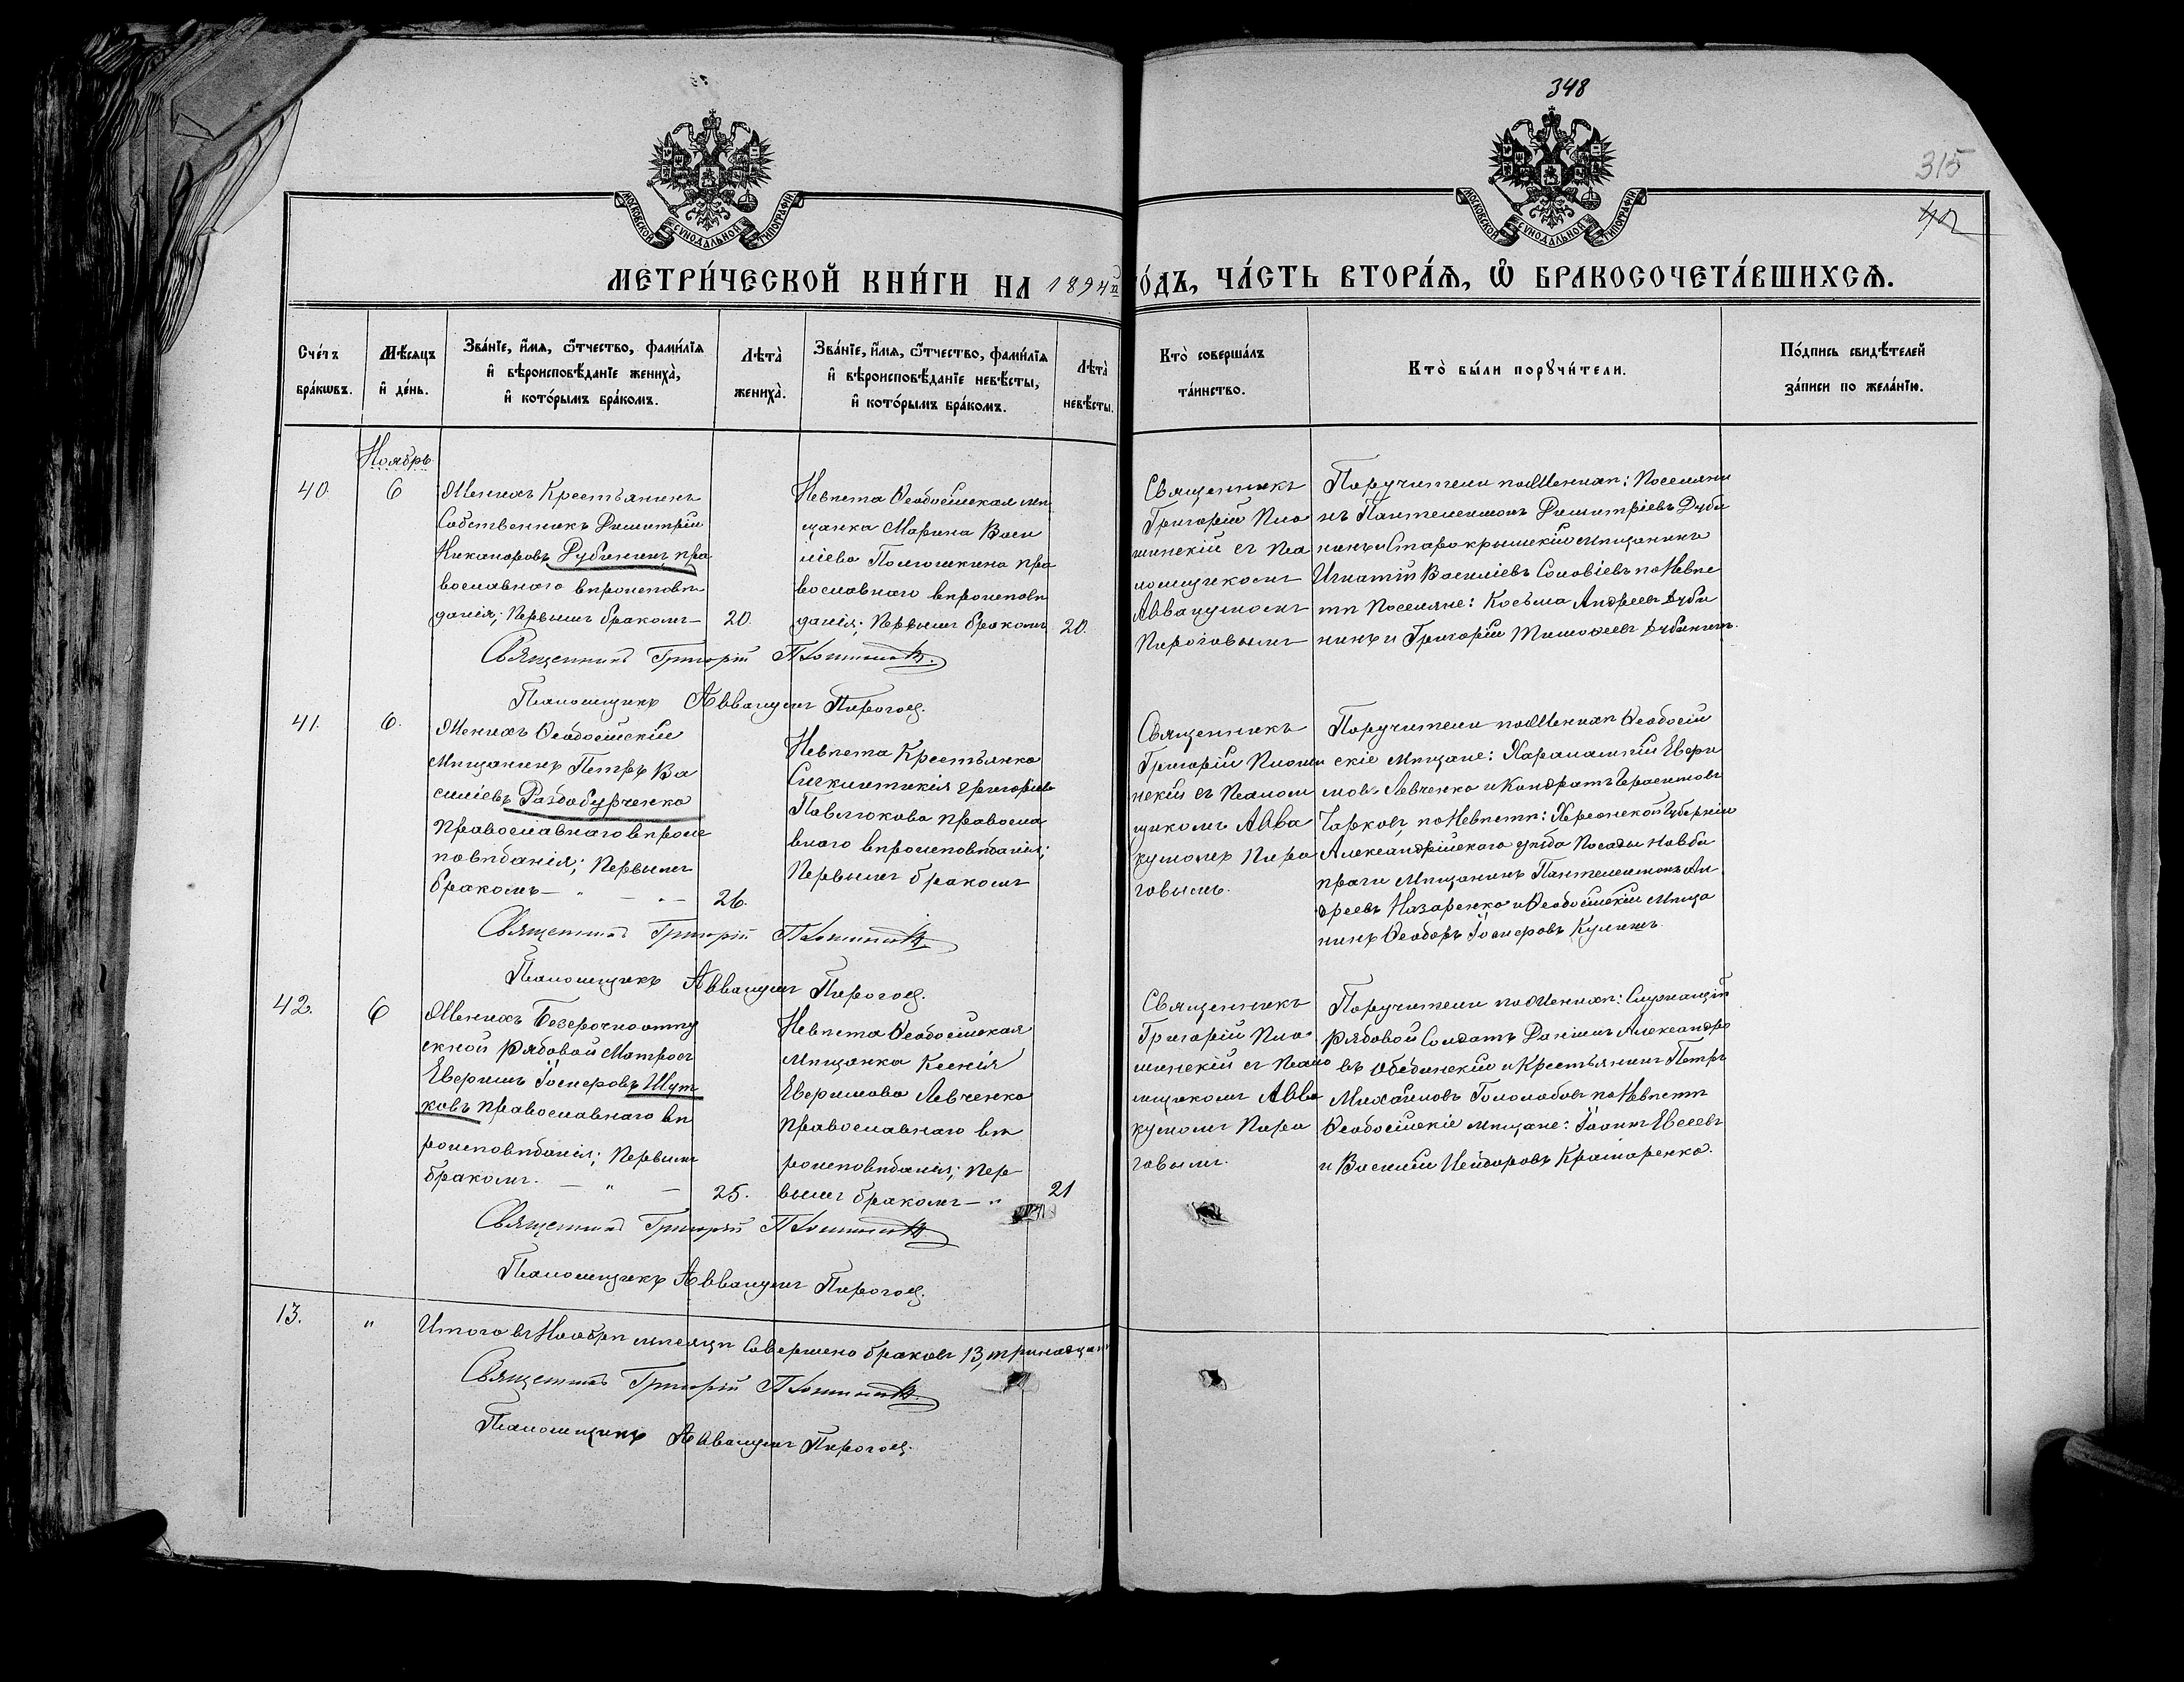 348
315
42
МОСКОВСКОЙ СѴНОДАЛЬНОЙ ТИПОГРАФІИ
МОСКОВСКОЙ СѴНОДАЛЬНОЙ ТИПОГРАФІИ
МЕТРИ́ЧЕСКОЙ КНИ́ГИ НА 1894й ГО́ДЪ, ЧА́СТЬ ВТОРА́Я, Ѡ БРАКОСОЧЕТА́ВШИХСЯ.
Сче́тъ
бра́кѡвъ.
Мѣ́сяцъ
и҆ де́нь.
Зва́нїе, и҆́мя, ѻ҆́тчество, фами́лїя
и҆ вѣроисповѣ́данїе жениха̀,
и҆ кото́рымъ бра́комъ.
Лѣта̀
жениха̀.
Зва́нїе, и҆́мя, ѻ҆́тчество, фами́лїя
и҆ вѣроисповѣ́данїе невѣ́сты,
и҆ кото́рымъ бра́комъ.
Лѣта̀
невѣ́сты.
Кто̀ соверша́лъ
та́инство.
Кто̀ бы́ли порꙋчи́тели.
По́дпись свидѣ́телей
за́писи по жела́нїю.
Ноябрь
40.
6
Женихъ Крестьянинъ
Собственникъ Димитрій
Никаноровъ Дубининъ пра
вославнаго вѣроисповѣ
данія; Первымъ бракомъ—
20.
Невѣста Ѳеодосійская мѣ
щанка Марина Васи
ліева пра
вославнаго вѣроисповѣ
данія; Первымъ бракомъ
20.
Священникъ
Григорій
шинскій съ Пса
ломщикомъ
Аввакумомъ
Пироговымъ
Поручители по Женихѣ: Поселяни
нъ Пантелеимонъ Димитріевъ Дуби
нинъ и Старокрымскій Мѣщанинъ
Игнатій Василіевъ Соловіевъ по Невѣс
тѣ Поселяне: Косьма Андреевъ Дуби
нинъ и Григорій Тимоѳеевъ Дубининъ.
Священникъ Григорій
Псаломщикъ Аввакумъ Пироговъ.
41.
6.
Женихъ Ѳеодосійскій
Мѣщанинъ Петръ Ва
силіевъ Раздобурченко
Православнаго вѣроис
повѣданія; Первымъ
бракомъ— " —
26.
Невѣста Крестьянка
Григоріева
Павлюкова правосла
внаго вѣроисповѣданія;
Первымъ бракомъ
Священникъ
Григорій
нскій съ Псалом
щикомъ Авва
кумомъ Пиро
говымъ.
Поручители по Женихѣ Ѳеодосій
скіе Мѣщане: Харалампій Евѳи
мовъ Левченко и Кондратъ Герасимовъ
по Невѣстѣ: Херсонской Губерніи
Александрійскаго уѣзда Посада Новой
праги Мѣщанинъ Пантелеимонъ Ан
дреевъ Назаренко и Ѳеодосійскій Мѣща
нинъ Ѳеодоръ Іосифовъ Кулишъ.
Священникъ Григорій
Псаломщикъ Аввакумъ Пироговъ.
42.
6
Женихъ Безсрочноотпу
скной рядовой Матросъ
Евѳимъ Іосифовъ Шут
ковъ православнаго вѣ
роисповѣданія; Первымъ
бракомъ. — " —
25.
Невѣста Ѳеодосійская
Мѣщанка Ксенія
Евѳимова Левченко
Православнаго вѣ
роисповѣданія; Пер
вымъ бракомъ— "
21
Священникъ
Григорій
шинскій съ Псало
мщикомъ Авва
кумомъ Пиро
говымъ.
Поручители по Женихѣ: Служащій
рядовой Солдатъ Даніилъ Александро
въ и Крестьянинъ Петръ
Михайловъ Гололобовъ по Невѣстѣ
Ѳеодосійскіе мѣщане: Іоаннъ Евсеевъ
и Василій Исидоровъ Крамаренко.
Священникъ Григорій
Псаломщикъ Аввакумъ Пироговъ.
13.
"
Итого въ Ноябрѣ мѣсяцѣ Совершено браковъ 13, тринадцать
Священникъ Григорій
Псаломщикъ Аввакумъ Пироговъ.